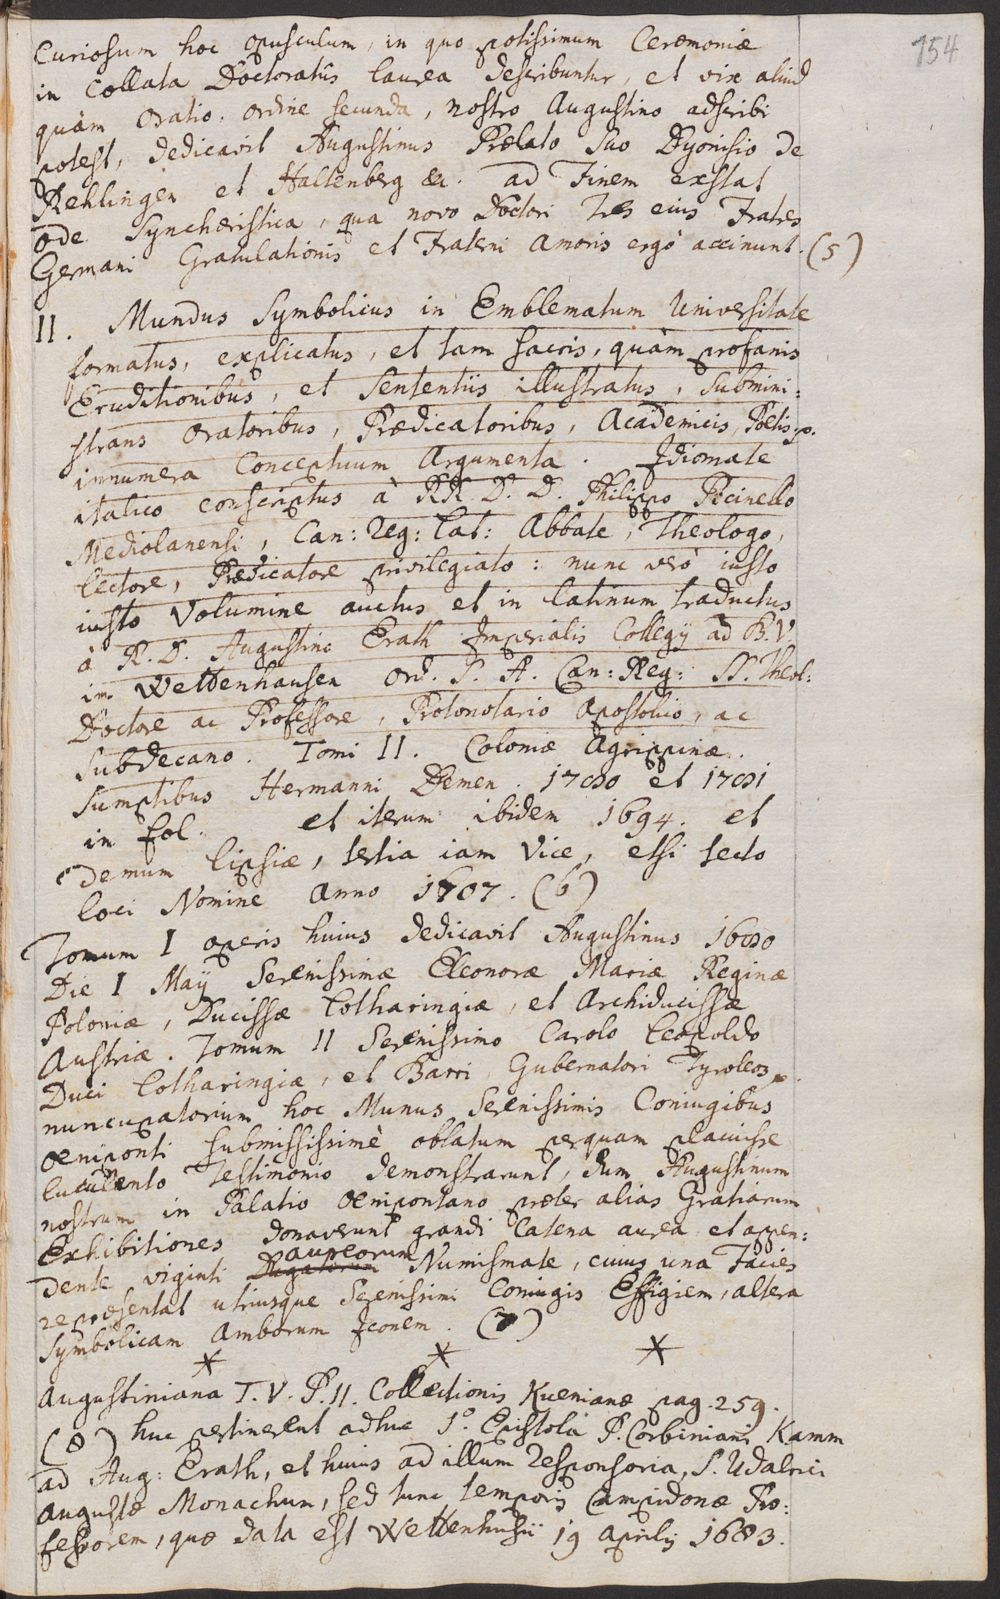 154
Curiosum hoc opusculum, in quo potissimum Ceremoniæ
in Collata Doctoratûs laurea describuntur, et vix aliud
quàm Oratio. ordine secunda, nostro Augustino adscribi
potest, dedicavit Augustinus Prælato suo Dyonisio de
Rehlingen et Haltenberg &c. ad Finem exstat
Ode Syncharistica, qua novo Doctori Tres eius Fratres
Germani Gratulationis et Fraterni Amoris ergò accinunt. (5)
II. Mundus Symbolicus in Emblematum Universitate
formatus, explicatus, et tam sacris, quàm profanis
Eruditionibus, et Sententiis illustratus, submini:
strans Oratoribus, Prædicatoribus, Academicis, Poëtis p.
innumera Conceptuum Argumenta. Idiomate
italico conscriptus à RR. D. D. Philippo Picinello
Mediolanensi, Can: Reg: Lat: Abbate, Theologo,
lectore, Prædicatore privilegiato: nunc verò iusto
iusto Volumine auctus et in latinum traductus
à R. D. Augustino Erath Imperialis Collegij ad B. V.
in Wettenhausen Ord. S. A. Can: Reg: SS. Theol:
Doctore ac Professore, Protonotario Apostolico, ac
Subdecano. Tomi II. Coloniæ Agrippinæ.
Sumptibus Hermanni Demen. 1780 et 1781
in fol. et iterum ibidem 1694. et
demum Lipsiæ, tertia iam Vice, etsi tecto
loci Nomine Anno 1707. (6)
Tomum I operis huius dedicavit Augustinus 1680
Die I Maÿ Serenissimæ Eleonoræ Mariæ Reginæ
Poloniæ, Ducissæ Lotharingiæ, et Archiducissæ
Austriæ. Tomum II Serenissimo Carolo Leopoldo
Duci Lotharingiæ, et Barri, Gubernatori Tyroleos p.
nuncupatorium hoc Munus Serenissimis Coniugibus
Oeniponti submississimè oblatum perquam placuisse
luculento Testimonio demonstrarunt, dum Augustinum
nostrum in Palatio Oenipontano præter alias Gratiarum
Exhibitiones donaverunt grandi Catena aurea et appen:
dente viginti aureorum Numismate, cuius una Facies
repræsentat utriusque Serenissimi Coniugis Effigiem, altera
Symbolicam Amborum Iconem. (7)
* * *
Augustiniana T. V. P. II. Collectionis Kuenianæ pag. 259.
(8) huc pertinerent adhuc 1º Epistola P. Corbiniani Kamm
ad Aug: Erath, et huius ad illum Responsoria, S. Udalrici
Augustæ Monachum, sed tunc temporis Campidonæ Pro:
fessorem, quæ data est Wettenhusii 19 Aprilij 1683.